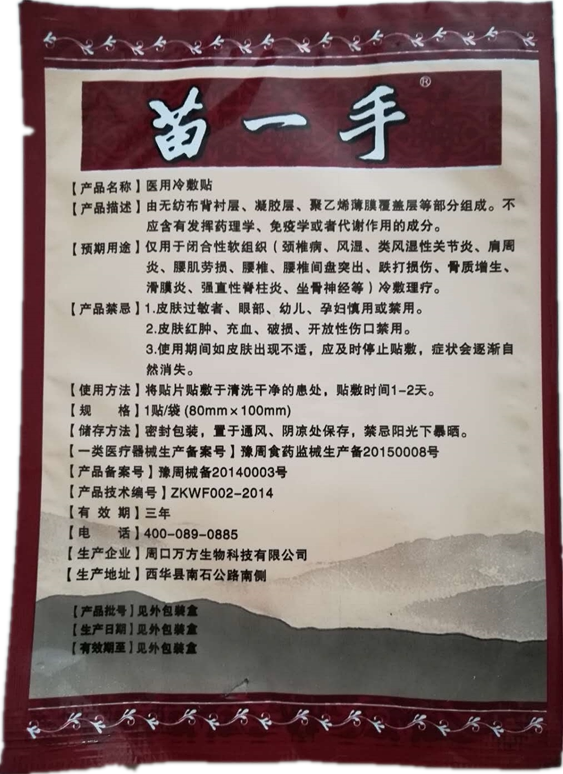 苗一手®
【产品名称】医用冷敷贴
【产品描述】由无纺布背衬层、凝胶层、聚乙烯薄膜覆盖层等部分组成。不
应含有发挥药理学、免疫学或者代谢作用的成分。
【预期用途】仅用于闭合性软组织（颈椎病、风湿、类风湿性关节炎、肩周
炎、腰肌劳损、腰椎、腰椎间盘突出、跌打损伤、骨质增生、
滑膜炎、强直性脊柱炎、坐骨神经等）冷敷理疗。
【产品禁忌】1.皮肤过敏者、眼部、幼儿、孕妇慎用或禁用。
2.皮肤红肿、充血、破损、开放性伤口禁用。
3.使用期间如皮肤出现不适，应及时停止贴敷，症状会逐渐自
然消失。
【使用方法】将贴片贴敷于清洗干净的患处，贴敷时间1-2天。
【规 格】1贴/袋 (80mm×100mm)
【储存方法】密封包装，置于通风、阴凉处保存，禁忌阳光下暴晒。
【一类医疗器械生产备案号】豫周食药监械生产备20150008号
【产品备案号】豫周械备20140003号
【产品技术编号】ZKWF002-2014
【有 效 期】三年
【电 话】400-089-0885
【生产企业】周口万方生物科技有限公司
【生产地址】西华县南石公路南侧
【产品批号】见外包装盒
【生产日期】见外包装盒
【有效期至】见外包装盒